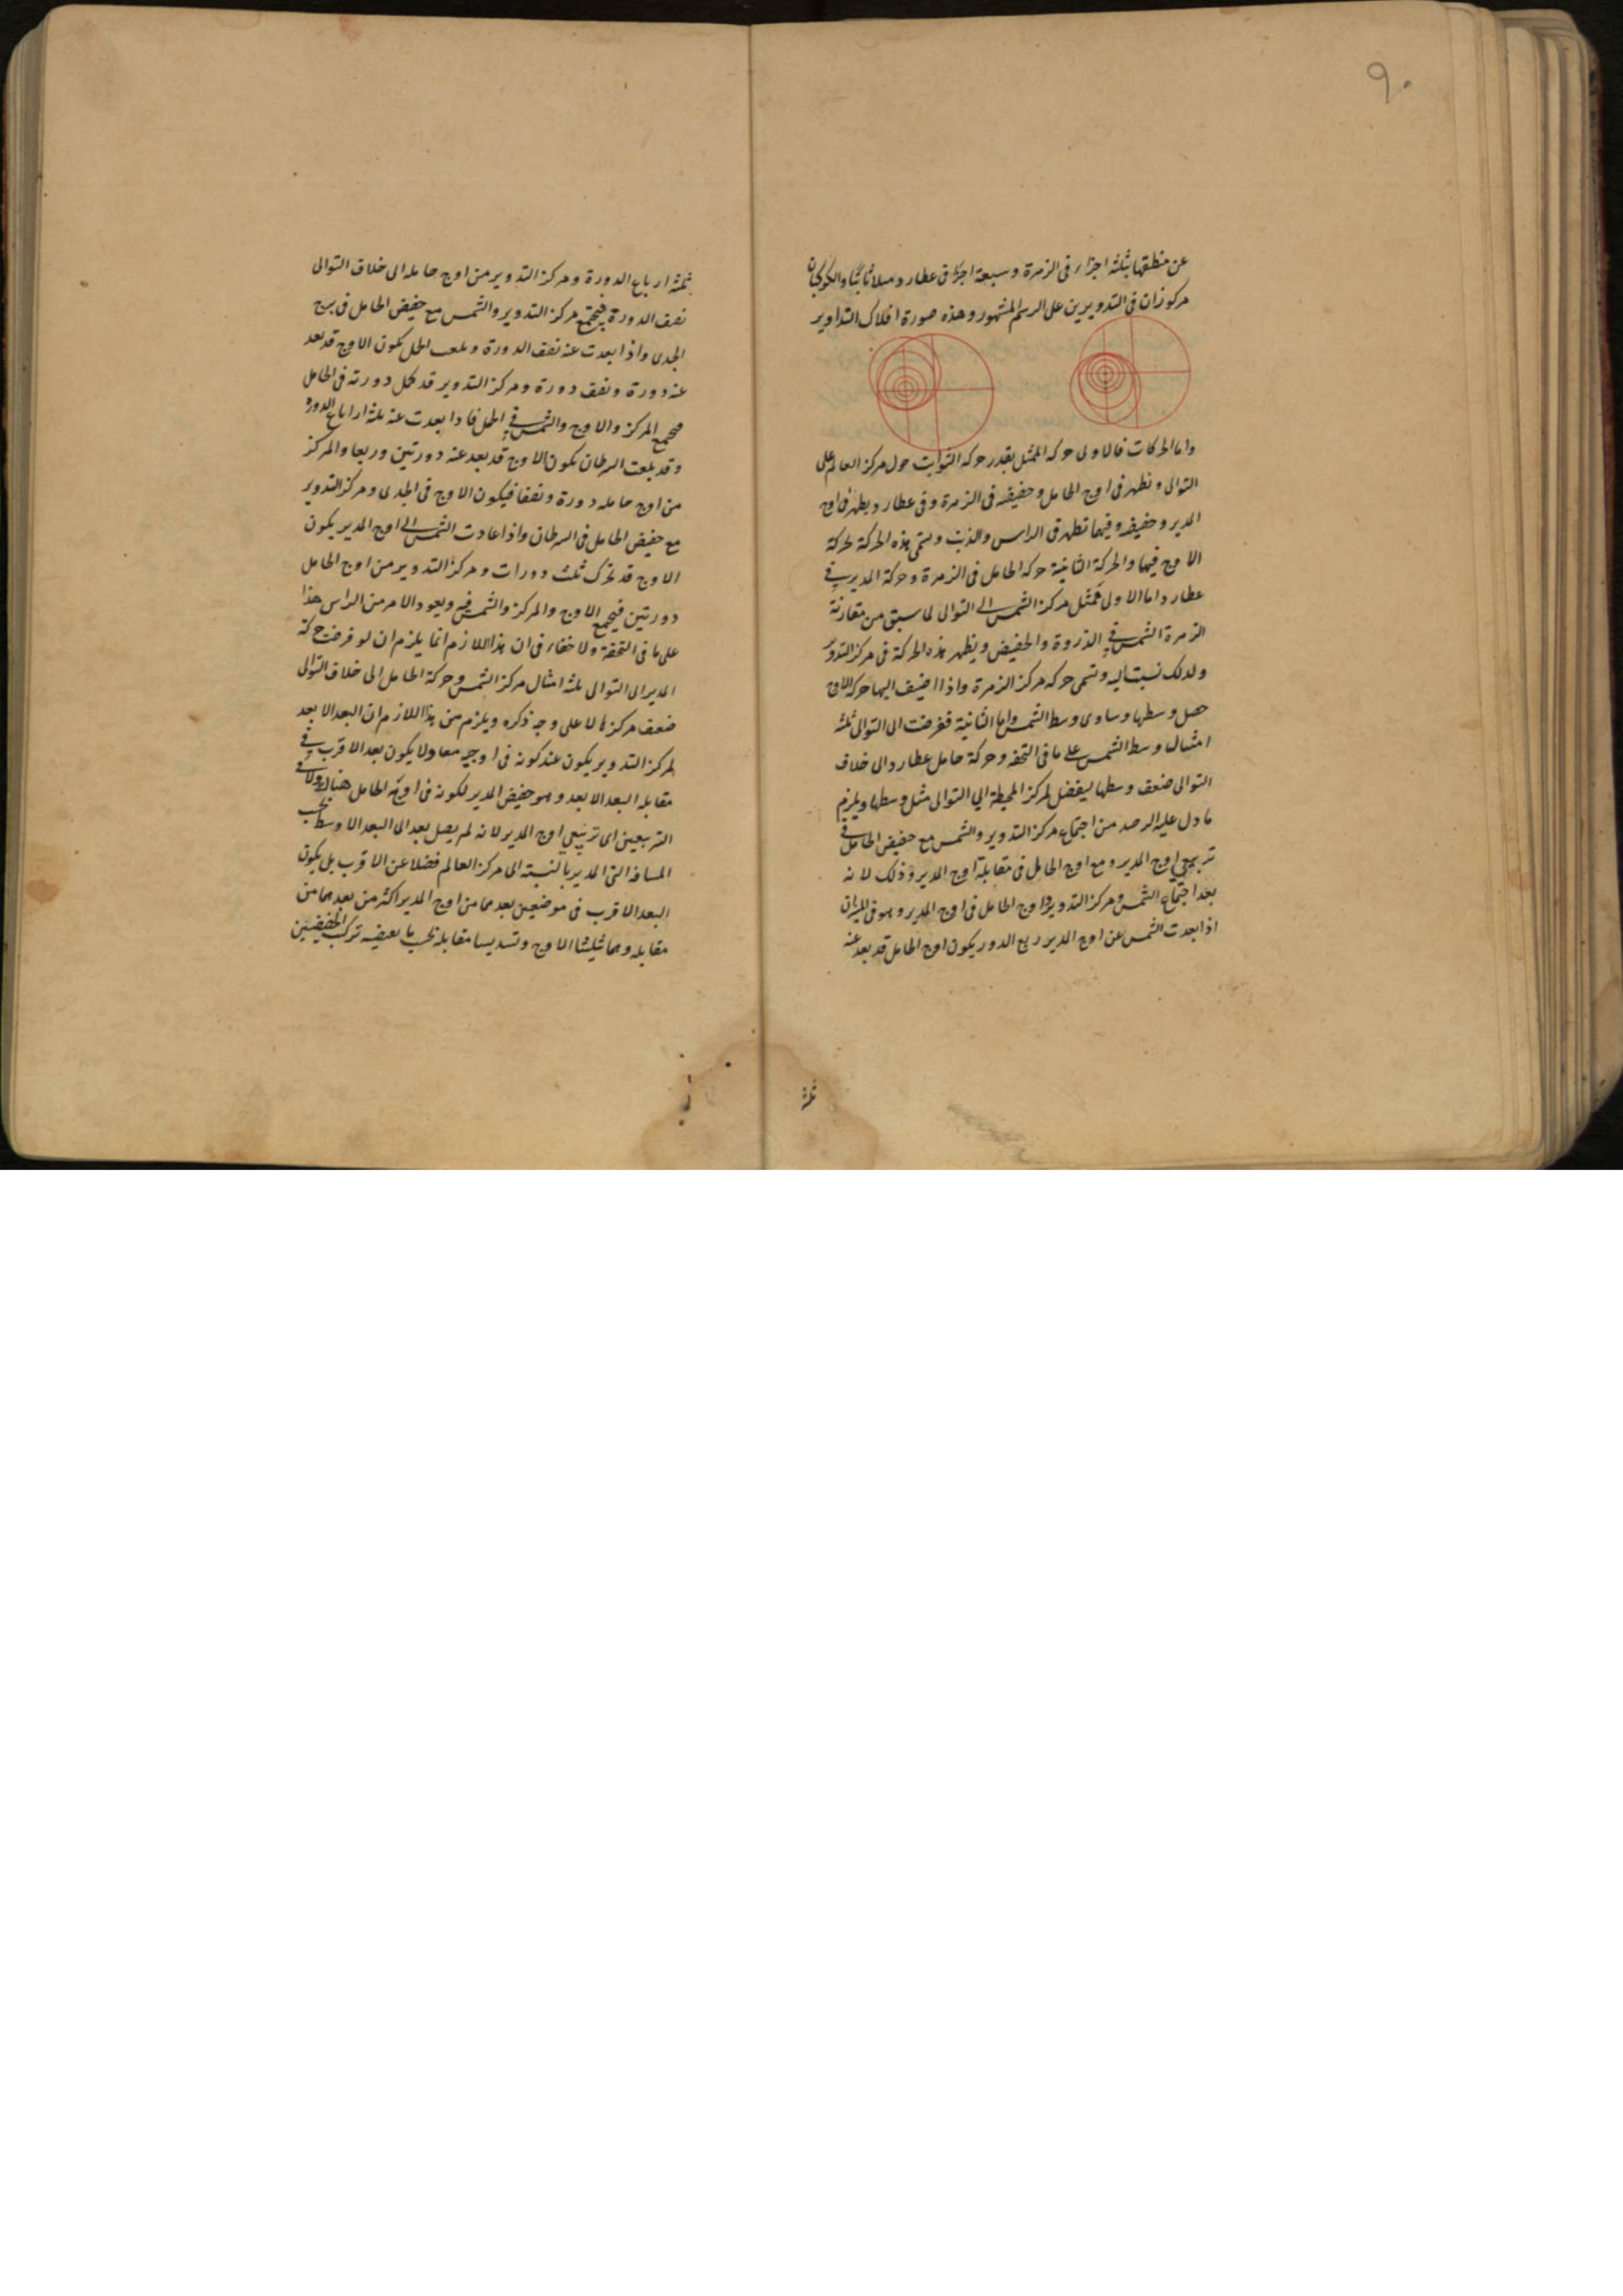 ٩٠
عن منطقها بثلثة اجزاء فى الزهرة وسبعة اجزاء فى عطارد ميلا ثابتا والكوكبان
مركوزان فى التدويرين على الرسم المشهور وهذه صورة افلاك التداوير
واما الحركات فالاولى حركه الممثل بقدر حركه الثوابت حول مركز العالم على
التوالى وتظهر فى اوج الحامل وحضيضه فى الزهرة وفى عطارد يظهر فى اوج
المدير وحضيضه وفيهما تظهر فى الراس والذنب وتسمى هذه الحركة بحركة
الاوج فيهما والحركة الثانية حركه الحامل فى الزهرة وحركة المدير فى
عطارد اما الاولى فمثل مركز الشمس الى التوالى لما سبق من مقارنة
الزهرة الشمس فى الذروة والحضيض ويظهر هذه الحركة فى مركز التدوير
ولذلك نسبت اليه وتسمى حركه مركز الزهرة واذا اضيف اليها حركه الاوج
حصل وسطها وساوى وسط الشمس واما الثانية ففرضت الى التوالى ثلثة
امثال وسط الشمس على ما فى التحفه وحركة حامل عطارد الى خلاف
التوالى ضعف وسطها ليفضل لمركز المحيطة الى التوالى مثل وسطها ويلزم
ما دل عليه الرصد من اجتماع مركز التدوير والشمس مع حضيض الحامل فى
تربيعى اوج المدير ومع اوج الحامل فى مقابلة اوج المدير وذلك لانه
بعد اجتماع الشمس ومركز التدوير واوج الحامل فى اوج المدير وهو فى الميزان
اذا بعدت الشمس عن اوج المدير ربع الدور يكون اوج الحامل قد بعد عنه
ثلثة
ثلثة ارباع الدورة ومركز التدوير من اوج حامله الى خلاف التوالى
نصف الدورة فيجتمع مركز التدوير والشمس مع حضيض الحامل فى برج
الجدى واذا بعدت عنه نصف الدورة وبلغت الحمل يكون الاوج قد بعد
عنه دورة ونصف دورة ومركز التدوير قد كمل دورته فى الحامل
فيجتمع المركز والاوج والشمس فى الحمل فاذا بعدت عنه ثلثة ارباع الدورة
وقد بلغت السرطان يكون الاوج قد بعد عنه دورتين وربعا والمركز
من اوج حامله دورة ونصفا فيكون الاوج فى الجدى ومركز التدوير
مع حضيض الحامل فى السرطان واذا عادت الشمس الى اوج المدير يكون
الاوج قد تحرك ثلث دورات ومركز التدوير من اوج الحامل
دورتين فيجمع الاوج والمركز والشمس فيه ويعود الامر من الراس هذا
على ما فى التحفة ولا خفاء فى ان هذا اللازم انما يلزم ان لو فرضت حركة
المدير الى التوالى ثلثة امثال مركز الشمس وحركة الحامل الى خلاف التوالى
ضعف مركزها لا على وجه ذكره ويلزم من هذا اللازم ان البعد الابعد
لمركز التدوير يكون عند كونه فى اوجيه معا ولا يكون بعد الاقرب فى
مقابله البعد الابعد وهو حضيض المدير لكونه فى اوج الحامل هناك ولا فى
التربيعين اى تربيعى اوج المدير لانه لم يصل بعد الى البعد الاوسط بحسب
المسافة التى المدير بالنسبة الى مركز العالم فضلا عن الاقرب بل يكون
البعد الاقرب فى موضعين بعدهما من اوج المدير اكثر من بعدهما من
مقابله وهما تثليثا الاوج وتسديسا مقابله بحسب ما يعضيه تركب الحضيضين